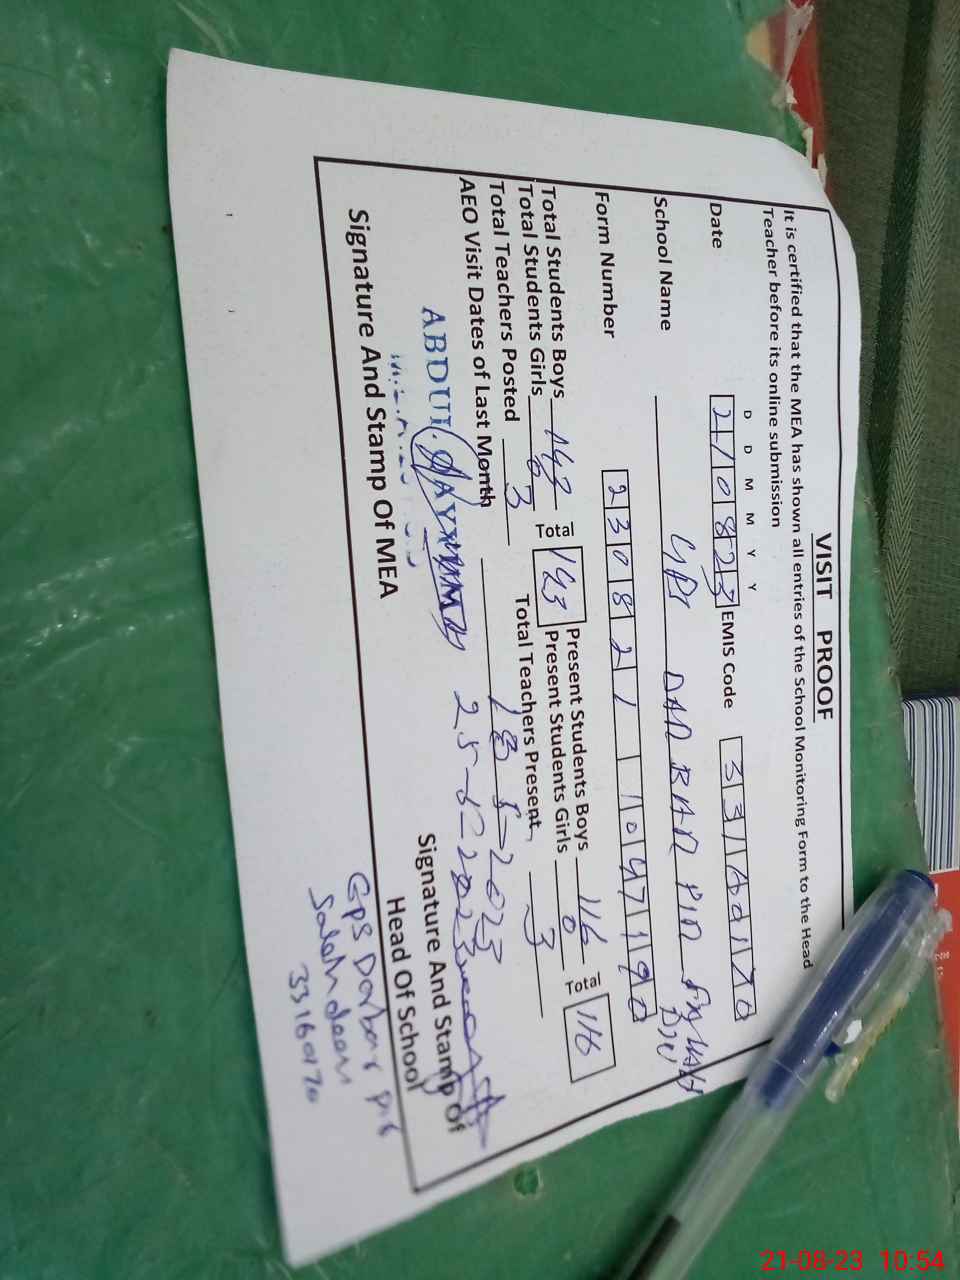 VISIT PROOF
It is certified that the MEA has shown all entries of the School Monitoring Form to the Head
Teacher before its online submission
D D M M Y Y
Date 210823 EMIS Code 33160170
School Name GPS DARBAR PIR
Form Number 230821 1047190
Total Students Boys 143 Total 143 Present Students Boys 116 Total 116
Total Students Girls 0 Present Students Girls 0
Total Teachers Posted 3 Total Teachers Present 3
AEO Visit Dates of Last Month 18-5-2023
25-5-2023
ABDUL QAYYUM
Signature And Stamp Of MEA
Signature And Stamp Of
Head Of School
GPS Darbar Pir
Salah deen
33160170
21-08-23 10:54